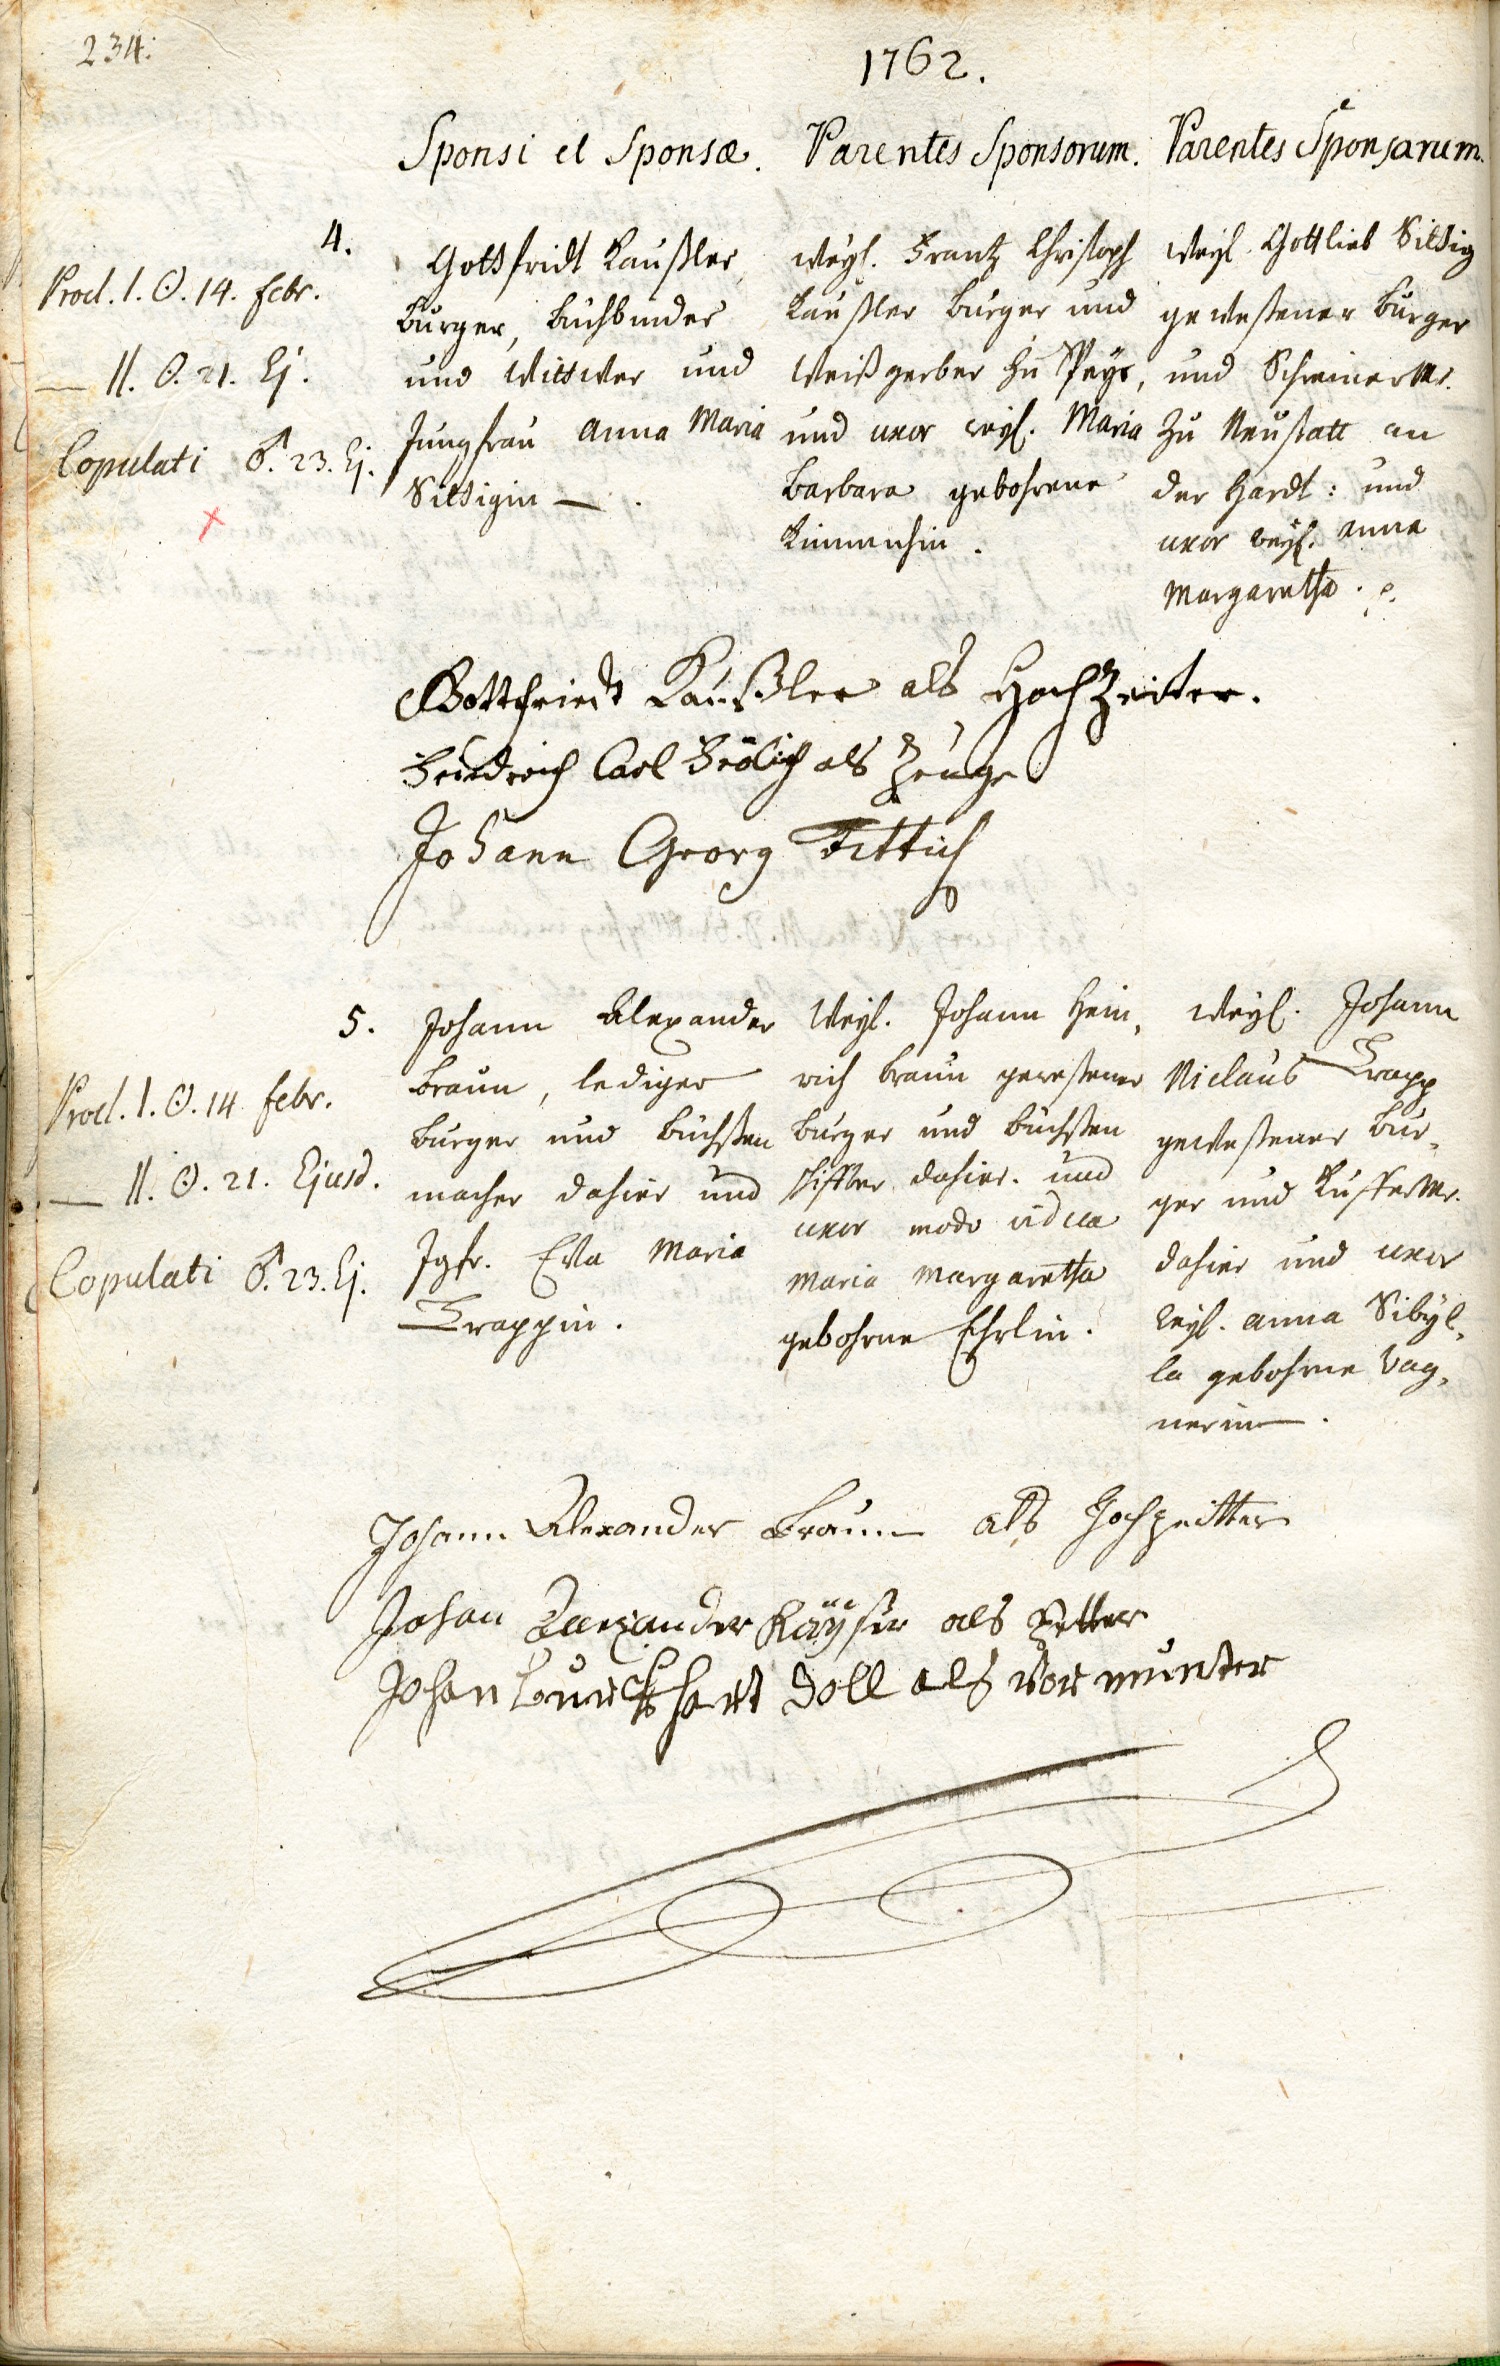 234.
1762.
Sponsi et Sponsæ. Parentes Sponsorum. Parentes Sponsarum.
4.
Procl. I. ☉. 14. febr.
— II. ☉. 21. Ej.
Copulati ♂. 23. Ej.
Gottfridt Kaußler
burger, buchbinder
und Wittwer und
Jungfrau Anna Maria
Sittigin — .
weyl. Frantz Christoph
Kaußler burger und
Weißgerber zu Speyr,
und uxor weyl. Maria
barbara gebohrene
weyl. Gottlieb Sittig
gewesener burger
und Schreiner Mr.
zu Neustatt an
der Hardt: und
uxor weyl. Anna
Margaretha.
Gottfriedt Kaußler als Hochzeiter.
Friedrich Carl Frölich als Zeuge
Johann Georg Fettich
5.
Procl. I. ☉. 14 febr.
— II. ☉. 21. Ejusd.
Copulati ♂. 23. Ej.
Johann Alexander
braun, lediger
burger und büchsen
macher dahier und
Jgfr. Eva Maria
Trappin.
Weyl. Johann Hein,
rich braun gewesener
burger und büchsen
schiffter dahier. und
uxor modo vidua
Maria Margaretha
gebohrne Ehrlin.
weyl. Johann
Niclaus Trapp
gewesener bur,
ger und Kuffer Mr.
dahier und uxor
weyl. Anna Sibyl,
la gebohrne Wag,
nerin — .
Johann Alexander Braun als Hochzeitter
Johan Alexander Kayser als Vetter
Johan burckhart Doll als vormunter